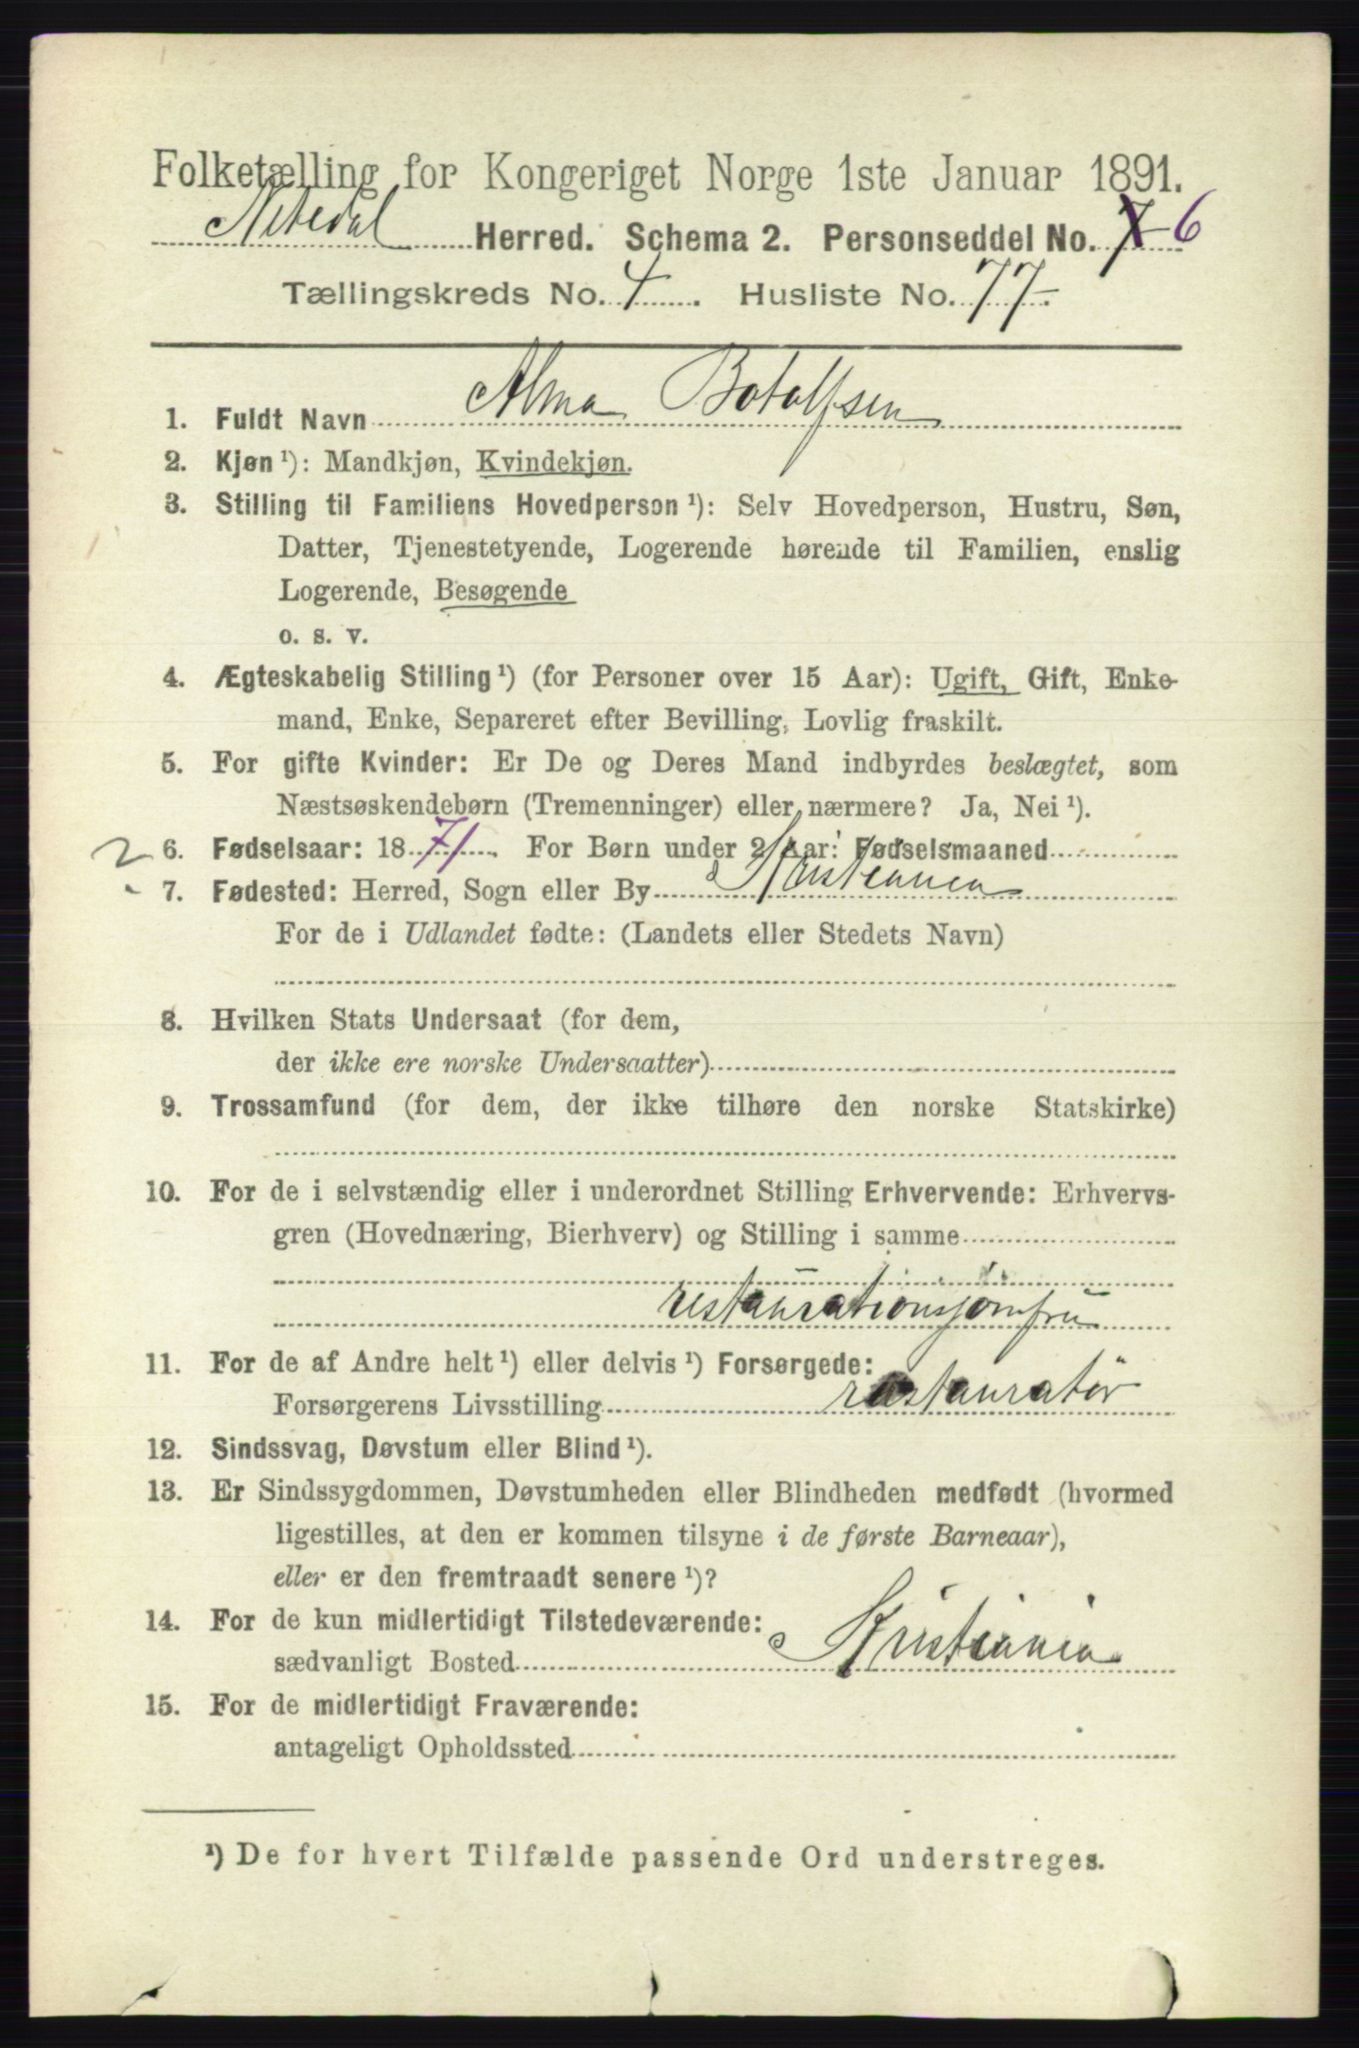 Folketælling for Kongeriget Norge 1ste Januar 1891.
Nitedal Herred. Schema 2. Personseddel No. 7 6
Tællingskreds No. 4. Husliste No. 77.
1. Fuldt Navn Alma Botolfsen
2. Kjøn ¹): Mandkjøn, Kvindekjøn.
3. Stilling til Familiens Hovedperson ¹): Selv Hovedperson, Hustru, Søn,
Datter, Tjenestetyende, Logerende hørende til Familien, enslig
Logerende, Besøgende
o. s. v.
4. Ægteskabelig Stilling ¹) (for Personer over 15 Aar): Ugift, Gift, Enke-
mand, Enke, Separeret efter Bevilling, Lovlig fraskilt.
5. For gifte Kvinder: Er De og Deres Mand indbyrdes beslægtet, som
Næstsøskendebørn (Tremenninger) eller nærmere? Ja, Nei ¹).
2 6. Fødselsaar: 1871. For Børn under 2 Aar: Fødselsmaaned
7. Fødested: Herred, Sogn eller By Kristiania
For de i Udlandet fødte: (Landets eller Stedets Navn)
8. Hvilken Stats Undersaat (for dem,
der ikke ere norske Undersaatter)
9. Trossamfund (for dem, der ikke tilhøre den norske Statskirke)
10. For de i selvstændig eller i underordnet Stilling Erhvervende: Erhvervs-
gren (Hovednæring, Bierhverv) og Stilling i samme
restaurationsjomfru
11. For de af Andre helt ¹) eller delvis ¹) Forsørgede:
Forsørgerens Livsstilling restauratör
12. Sindssvag, Døvstum eller Blind ¹).
13. Er Sindssygdommen, Døvstumheden eller Blindheden medfødt (hvormed
ligestilles, at den er kommen tilsyne i de første Barneaar),
eller er den fremtraadt senere ¹)?
14. For de kun midlertidigt Tilstedeværende:
sædvanligt Bosted Kristiania
15. For de midlertidigt Fraværende:
antageligt Opholdssted
¹) De for hvert Tilfælde passende Ord understreges.